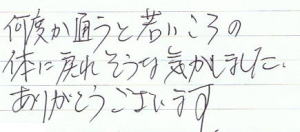 何度か通うと若いころの
体に戻れそうな気がしました。
ありがとうございます